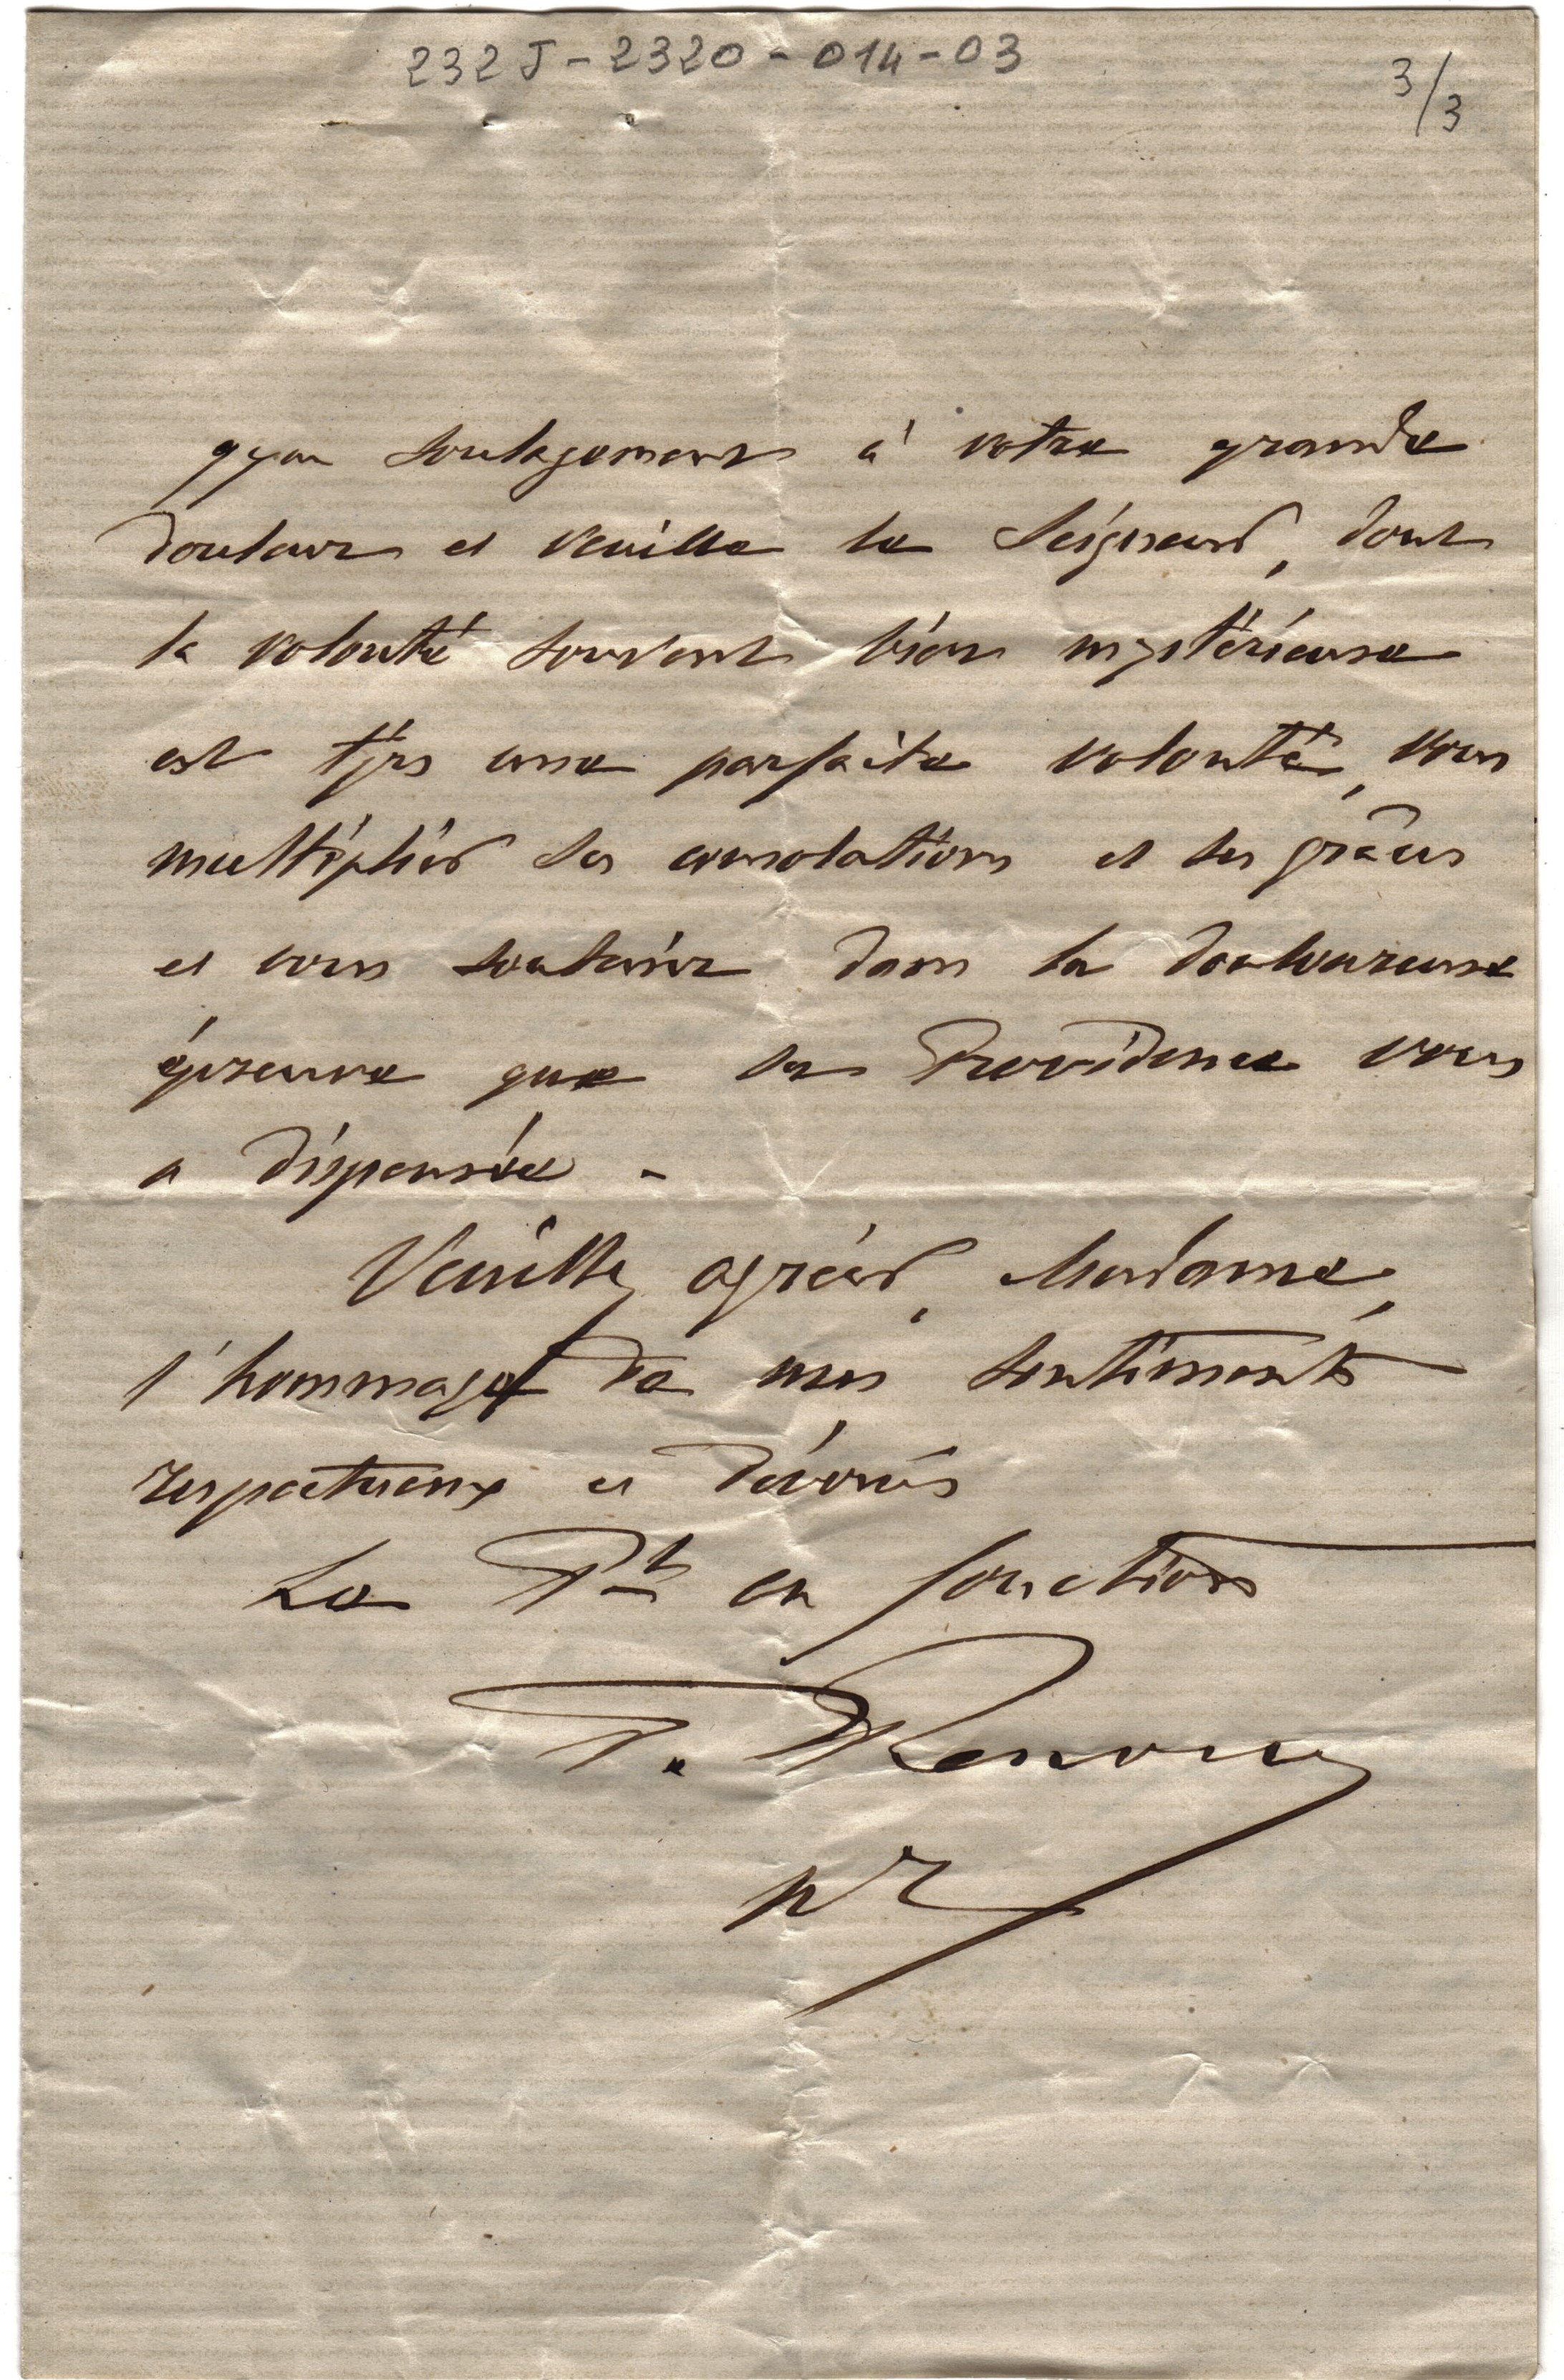 232 J - 2320 - 014 - 03
3/3
qq un soulagement à votre grande
douleur et veuille le Seigneur, dont
la volonté souvent bien mystérieuse
est tjrs une parfaite volonté, vous
multiplier ses consolations et ses grâces
et vous soutenir dans la douloureuse
épreuve que sa Providence vous
a dispensée -
Veuillez agréer, Madame,
l'hommage de mes sentiments
respectueux et dévoués
Le Pt en fonction
P. Renoux
pr